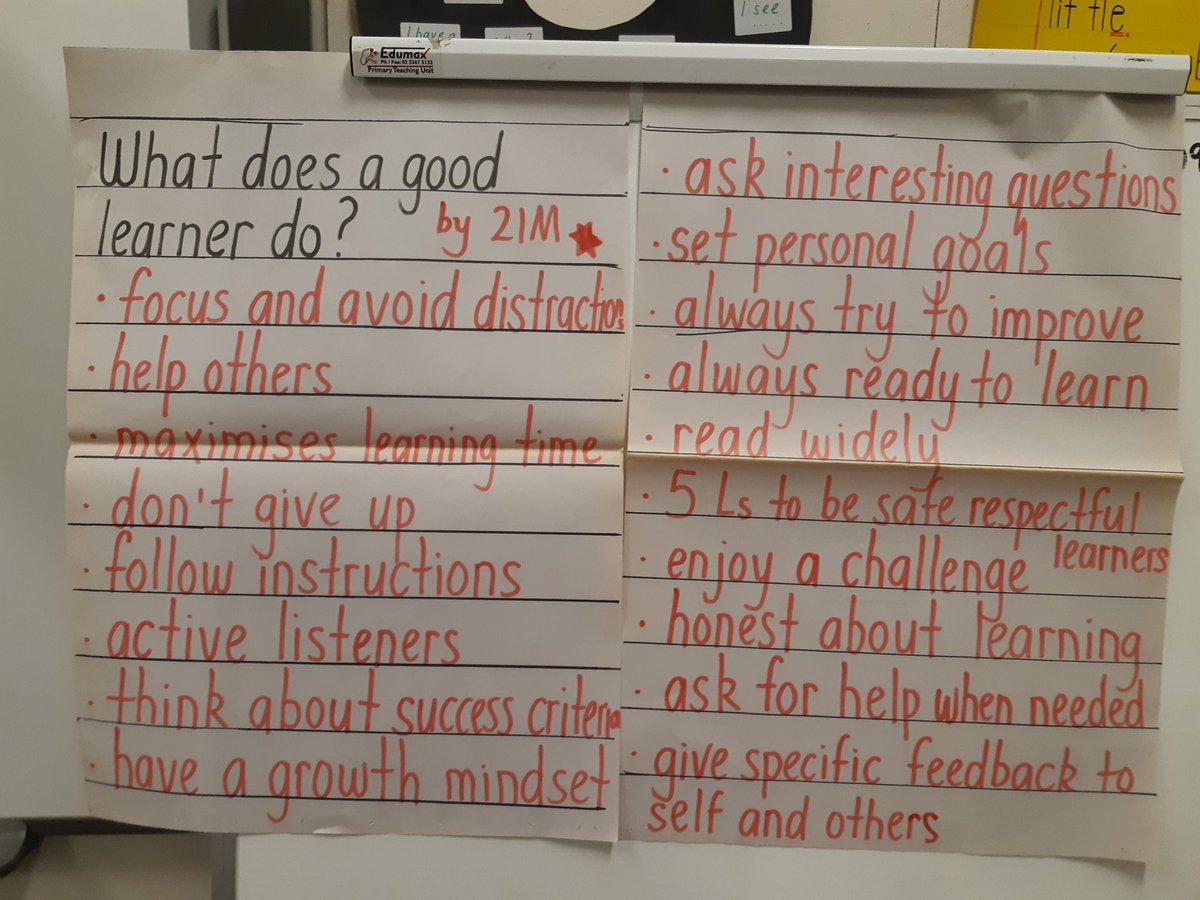 I see
little
I have a
Edumax
Primary Teaching Unit
What does a good
learner do?
by 21M
• focus and avoid distractions
• help others
• maximises learning time
• don't give up
• follow instructions
• active listeners
• think about success criteria
• have a growth mindset
• ask interesting questions
• set personal goals
• always try to improve
• always ready to learn
• read widely
• 5 Ls to be safe respectful
learners
• enjoy a challenge
• honest about learning
• ask for help when needed
• give specific feedback to
self and others